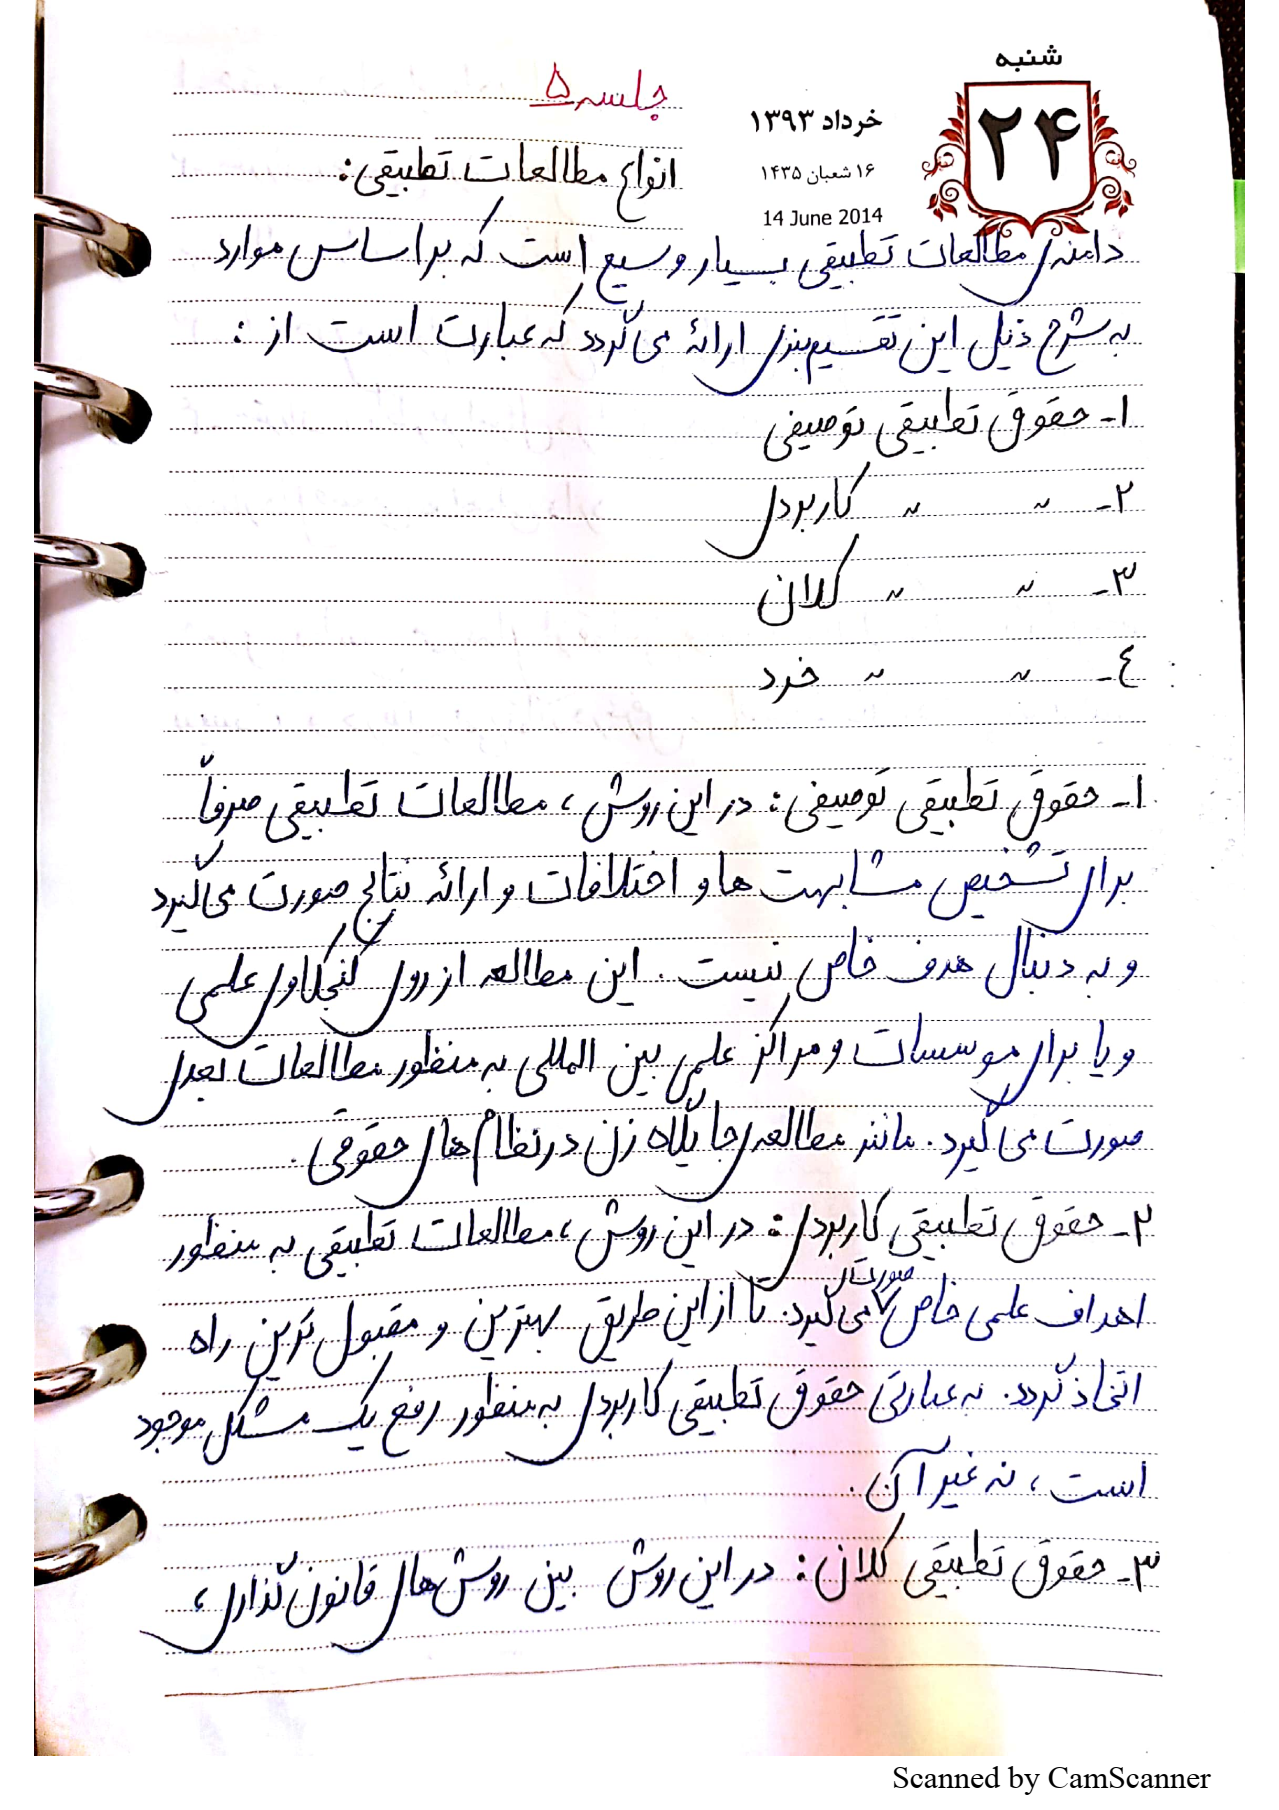 شنبه
۲۴
خرداد ۱۳۹۳
۱۶ شعبان ۱۴۳۵
14 June 2014
جلسه ۵
انواع مطالعات تطبیقی:
دامنه‌ی مطالعات تطبیقی بسیار وسیع است که براساس موارد
به شرح ذیل این تقسیم‌بندی ارائه می‌گردد که عبارت است از:
۱- حقوق تطبیقی توصیفی
۲- " " کاربردی
۳- " " کلان
٤- " " خرد
۱- حقوق تطبیقی توصیفی: در این روش، مطالعات تطبیقی صرفاً
برای تشخیص مشابهت ها و اختلافات و ارائه نتایج صورت می‌گیرد
و به دنبال هدف خاص نیست. این مطالعه از روی کنجکاوی علمی
و یا برای موسسات و مراکز علمی بین المللی به منظور مطالعات بعدی
صورت می‌گیرد. مانند مطالعه‌ی جایگاه زن در نظام های حقوقی.
۲- حقوق تطبیقی کاربردی: در این روش، مطالعات تطبیقی به منظور
اهداف علمی خاص صورت می‌گیرد. تا از این طریق بهترین و مقبول ترین راه
اتخاذ گردد. به عبارتی حقوق تطبیقی کاربردی به منظور رفع یک مشکل موجود
است، نه غیر آن.
۳- حقوق تطبیقی کلان: در این روش بین روش‌های قانون گذاری،
Scanned by CamScanner